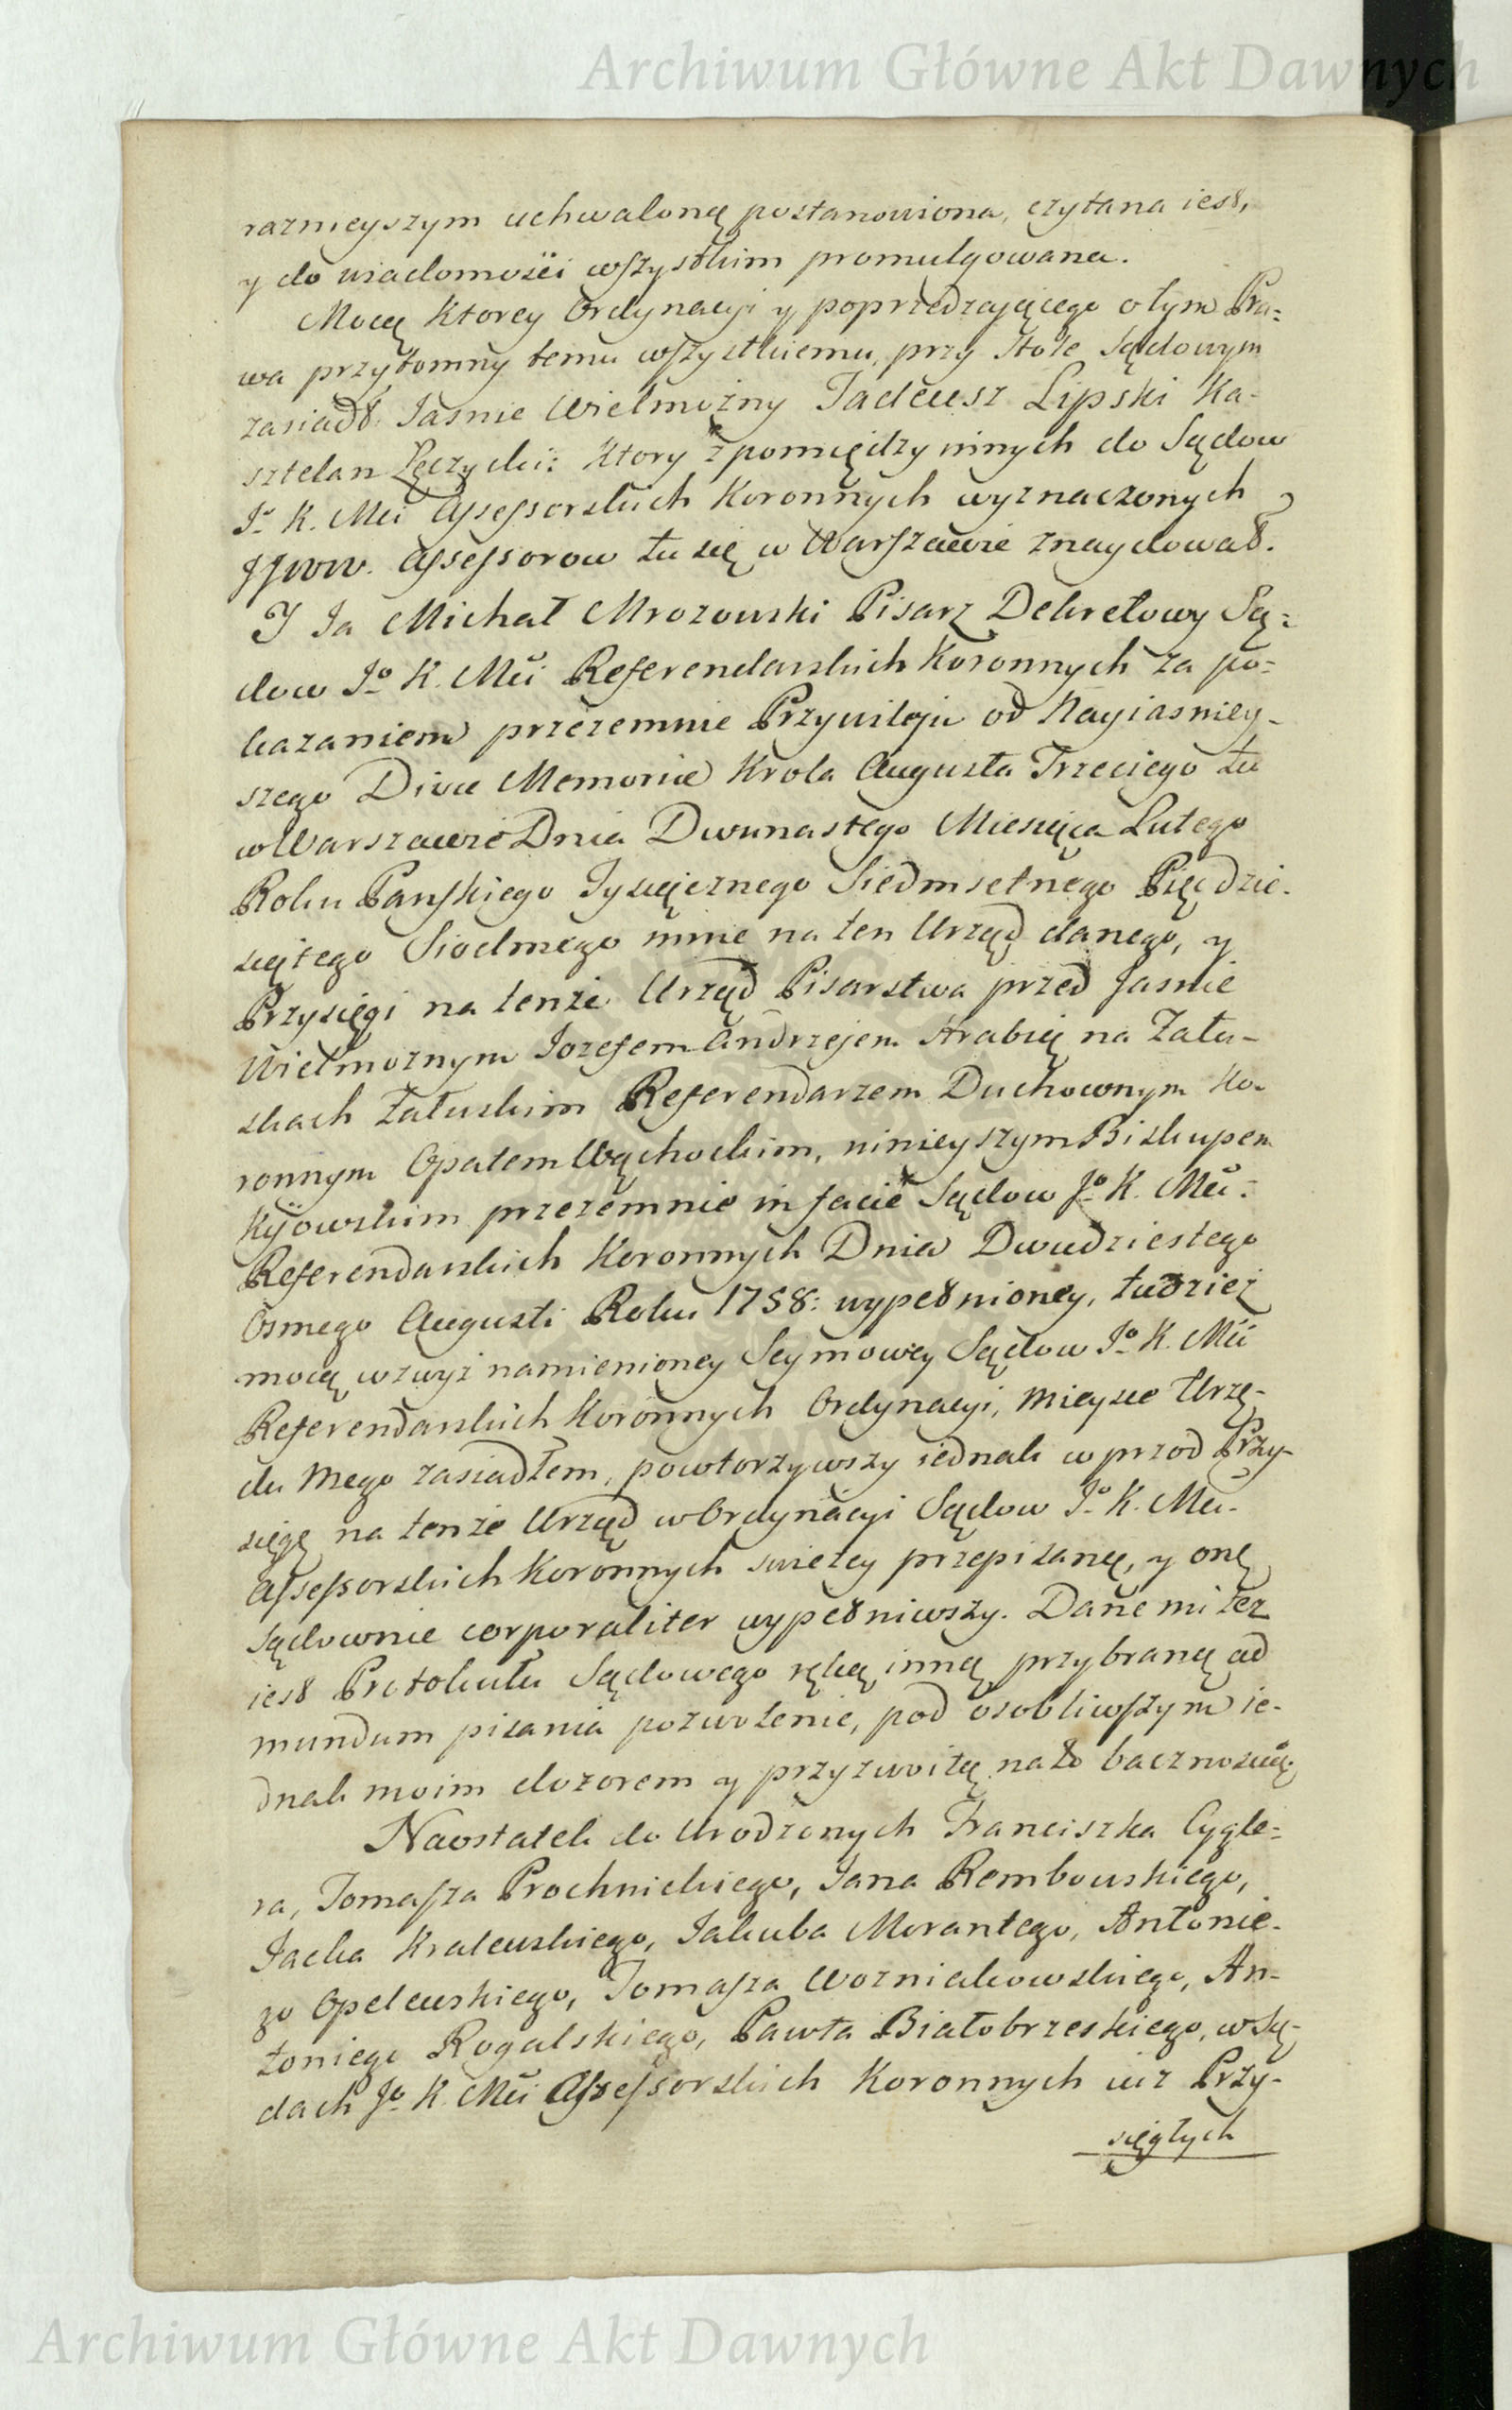 Archiwum Główne Akt Dawnych
raznieyszym uchwaloną postanowiona, czytana iest,
y do wiadomości wszystkim promulgowana.
Mocą Ktorey Ordynacyi y poprzedzaiącego o tym Pra=
wa przytomny temu wszystkiemu, przy stole Sądowym
zasiadł Jasnie Wielmożny Tadeusz Lipski Ka-
sztelan Łęczycki: Ktory z pomiędzy innych do Sądow
Jo K. Mci Assessorskich Koronnych wyznaczonych
JJWW. Assessorow tu się w Warszawie znaydował.
I Ja Michał Mrozowski Pisarz Dekretowy Są=
dow Jo K. Mci Referendarskich Koronnych za po=
kazaniem przezemnie Przywileju od Nayiasniey-
szego Divæ Memoriæ Krola Augusta Trzeciego tu
w Warszawie Dnia Dwunastego Miesiąca Lutego
Roku Panskiego Tysiącznego Siedmsetnego Pięcdzie-
siątego Siodmego mnie na ten Urząd danego, y
Przysięgi na tenże Urząd Pisarstwa przed Jasnie
Wielmoznym Jozefem Andrzejem Hrabią na Zału-
skach Załuskim Referendarzem Duchownym Ko-
ronnym Opatem Wąchockim, ninieyszym Biskupem
Kijowskim przezemnie in facie Sądow Jo K. Mci:
Referendarskich Koronnych Dnia Dwudziestego
Osmego Augusti Roku 1758: wypełnioney, tudzież
mocą wzwyż namienioney Seymowey Sądow Jo K. Mci
Referendarskich Koronnych Ordynacyi, mieysce Urzę-
du mego zasiadłem, powtorzywszy iednak wprzod Przy-
sięgę na tenże Urząd w Ordynacyi Sądow Jo K. Mci.
Assessorskich Koronnych swiezey przepisaną, y onę
sądownie corporaliter wypełniwszy. Dane mi też
iest Protokułu Sądowego ręką inną przybraną ad
mundum pisania pozwolenie, pod osobliwszym ie-
dnak moim dozorem y przyzwoitą na to bacznoscią.
Naostatek do Urodzonych Franciszka Cygle=
ra, Tomasza Prochnickiego, Jana Rembowskiego,
Jacka Kralewskiego, Jakuba Morantego, Antonie-
go Opelewskiego, Tomasza Wozniakowskiego, An-
toniego Rogalskiego, Pawła Białobrzeskiego, w Są-
dach Jo K. Mci Assessorskich Koronnych iuz Przy-
sięgłych
Archiwum Główne Akt Dawnych